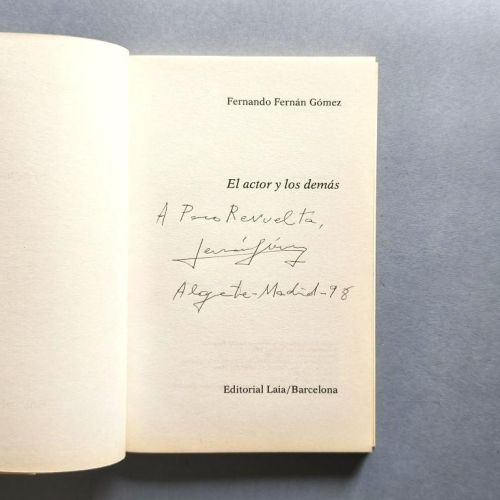 Fernando Fernán Gómez
El actor y los demás
A Paco Revuelta,
Fernán Gómez
Algete-Madrid-98
Editorial Laia/Barcelona